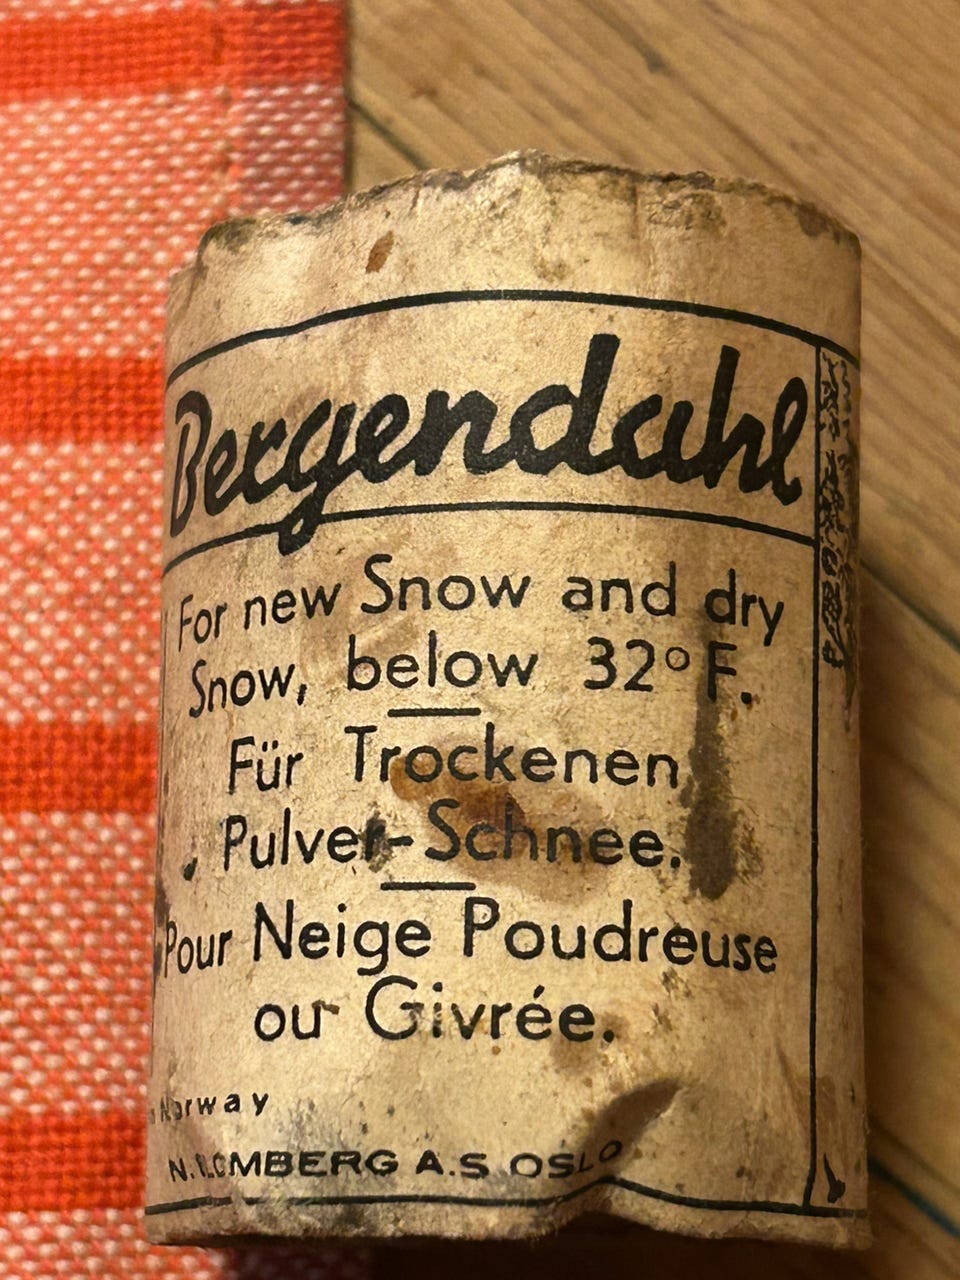 Bergendahl
For new Snow and dry
Snow, below 32° F.
Für Trockenen
Pulver-Schnee.
Pour Neige Poudreuse
ou Givrée.
Norway
A.S OSLO